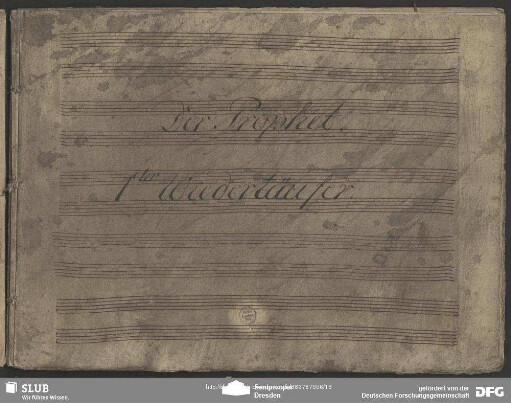 Der Prophet.
1ter Wiedertäufer.
SLUB
Wir führen Wissen.
Dresden
gefördert von der
Deutschen Forschungsgemeinschaft
DFG